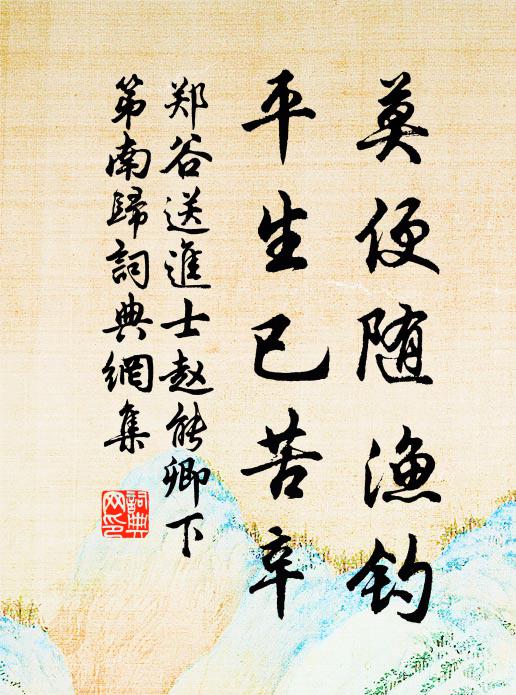 莫便随渔钓
平生已苦辛
郑谷送進士赵能卿下
第南歸詞典網集
詞典網印